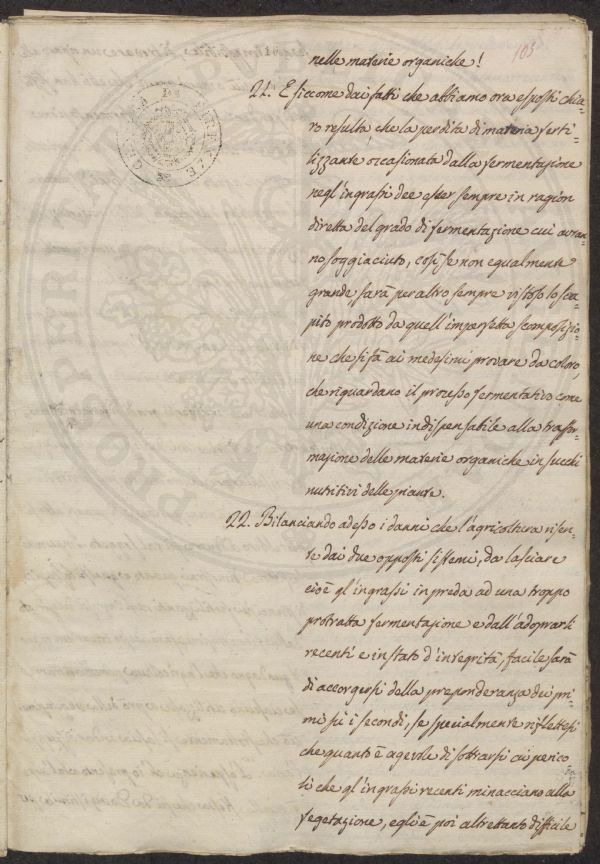 103
nelle materie organiche!
21. E siccome dai fatti che abbiamo ora esposti chia=
ro resulta, che la perdita di materia ferti=
lizzante occasionata dalla fermentazione
negl'ingrassi dee esser sempre in ragion
diretta del grado di fermentazione cui avran=
no soggiaciuto, così se non egualmente
grande sarà per altro sempre vistoso lo sca=
pito prodotto da quell'imperfetta scomposizio=
ne che si fà ai medesimi provare da coloro,
che riguardano il processo fermentativo come
una condizione indispensabile alla trasfor=
mazione delle materie organiche in succhi
nutritivi delle piante.
22. Bilanciando adesso i danni che l'agricoltura risen=
te dai due opposti sistemi, da lasciare
cioè gl'ingrassi in preda ad una troppo
protratta fermentazione e dall'adoprarli
recenti e in stato d'integrità, facile sarà
di accorgersi della preponderanza dei pri=
mi sù i secondi; se specialmente riflettesi
che quanto è agevole di sottrarsi ai perico=
li che gl'ingrassi recenti minacciano alla
vegetazione, egli è poi altrettanto difficile